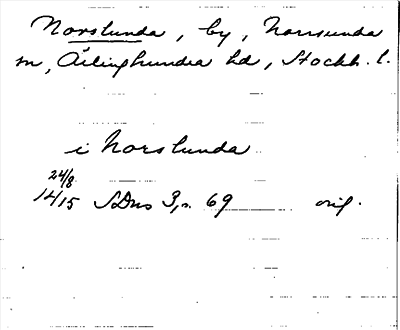 Norslunda, by, Norrsunda
sn, Ärlinghundra hd, Stockh. l.
i Norslunda
24/8
1415 SDns 3, s. 69 orig.